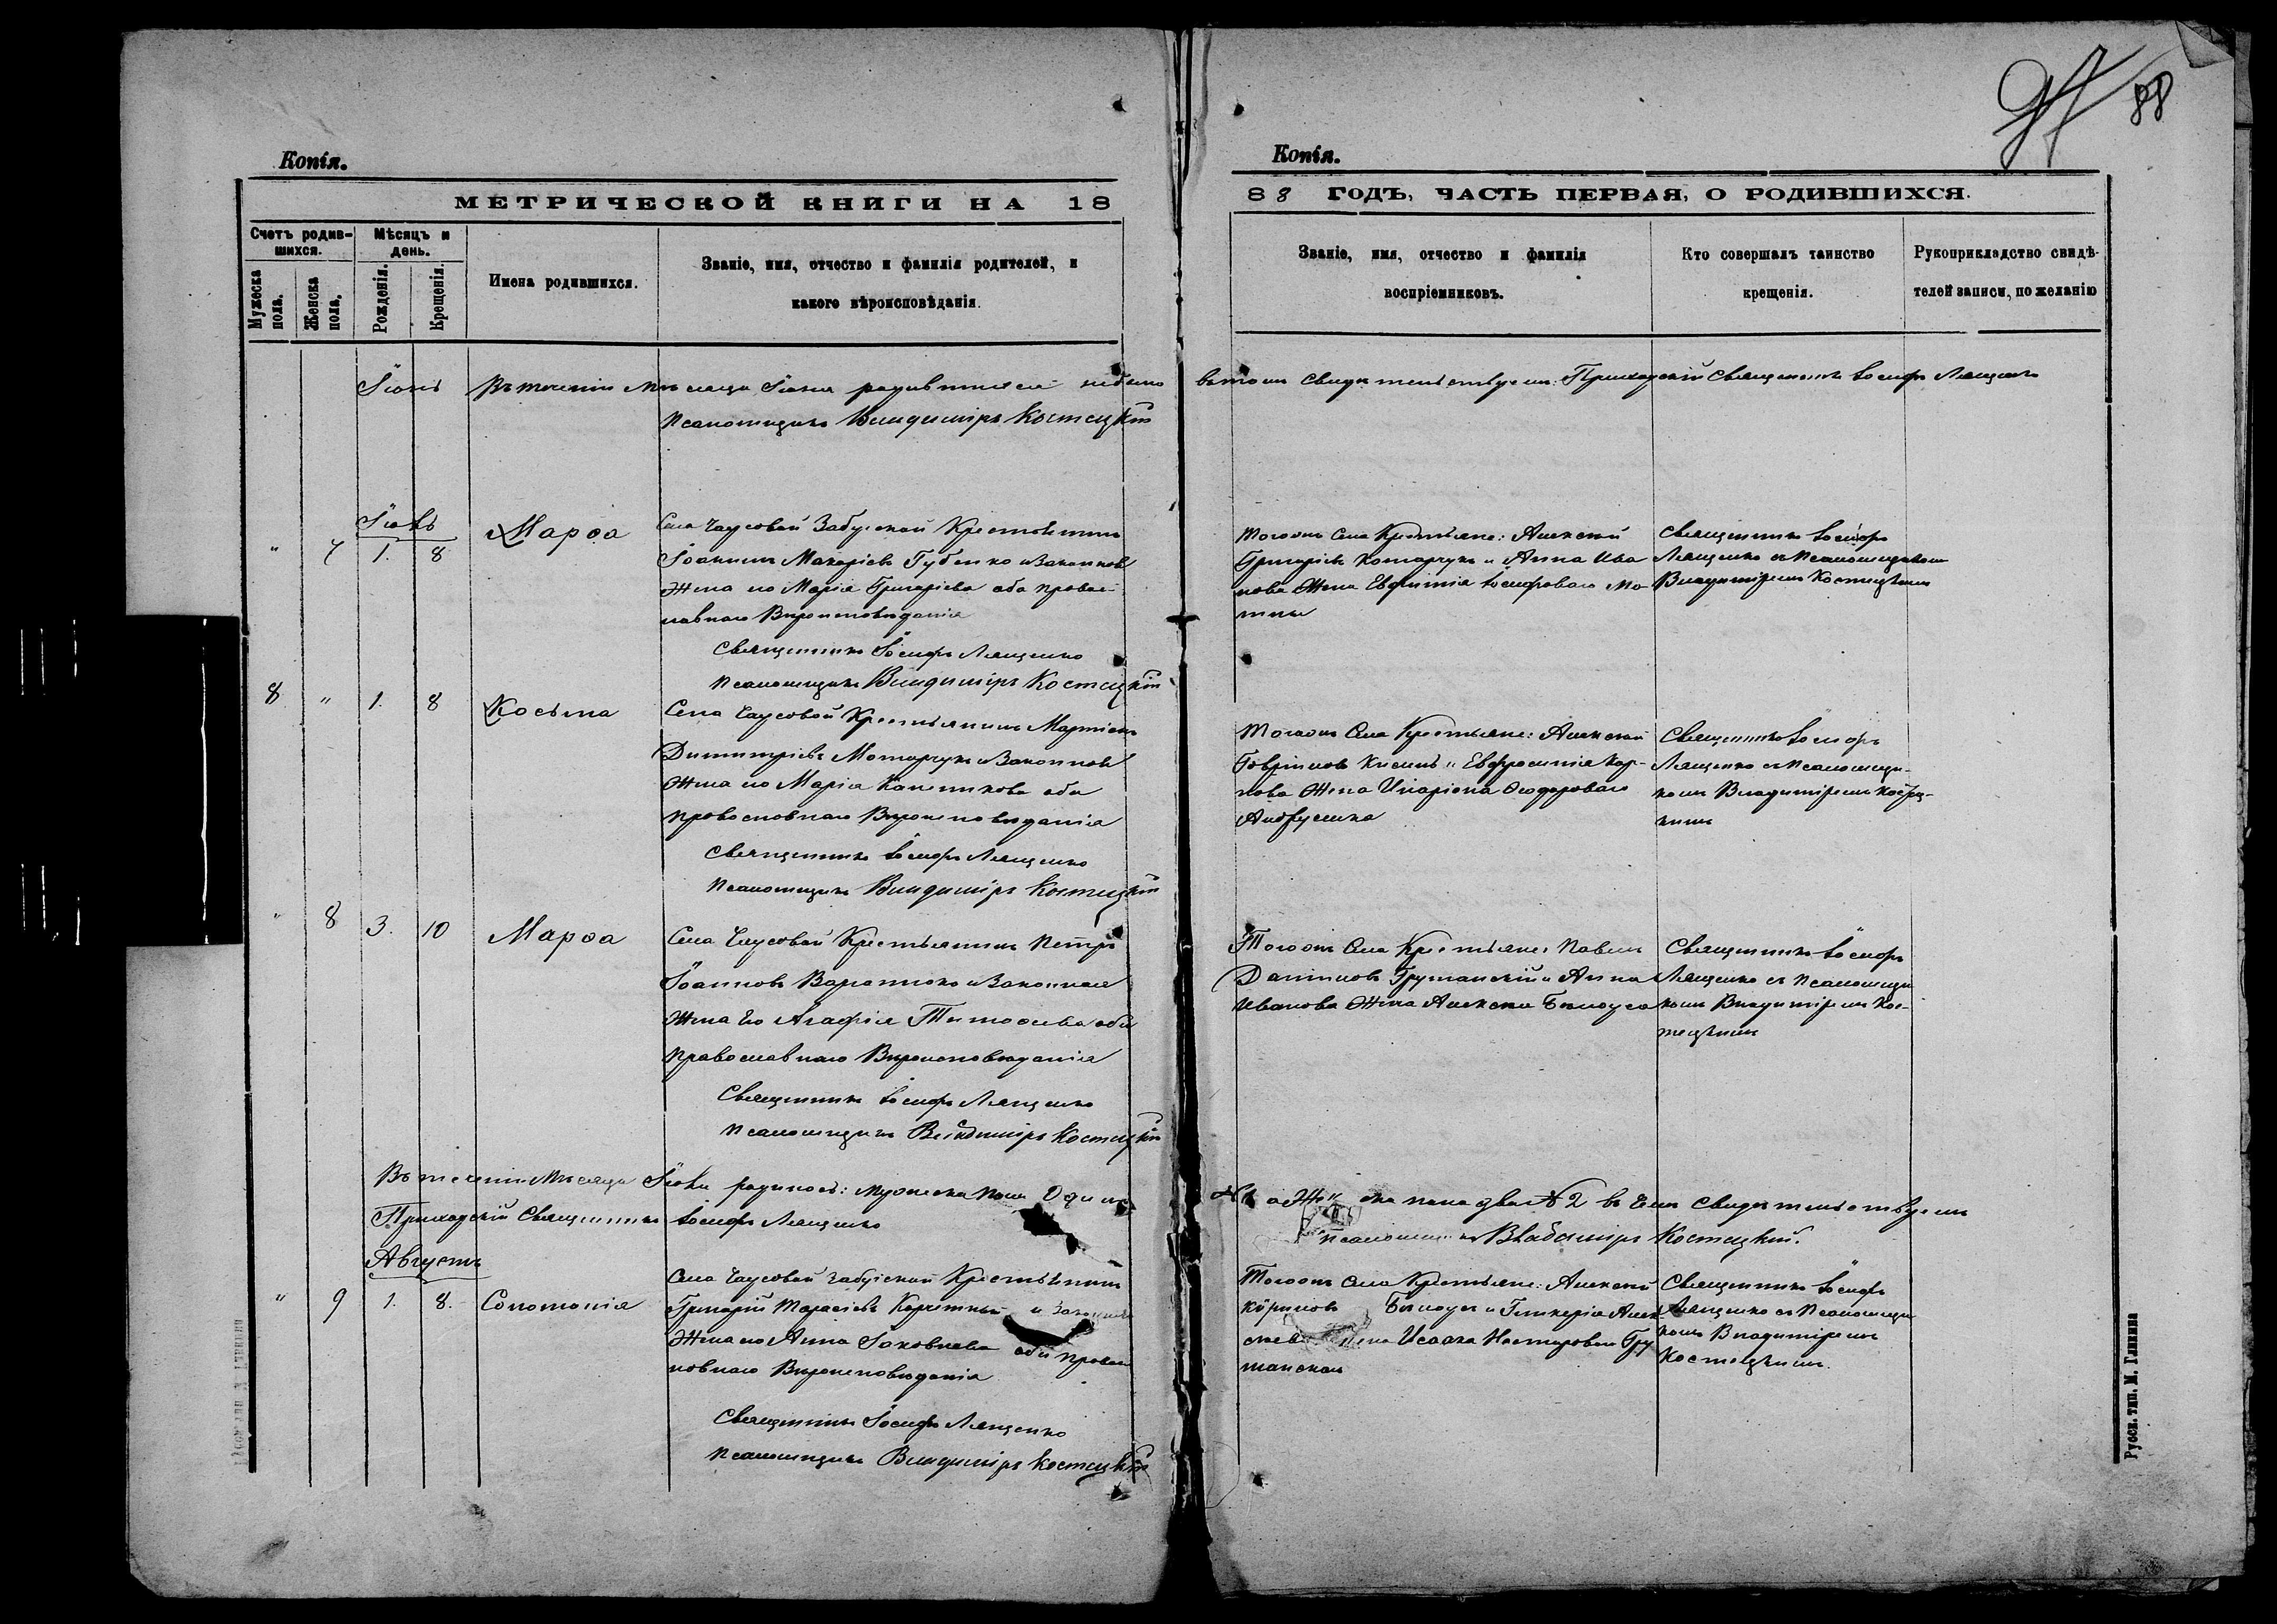 Копія.
МЕТРИЧЕСКОЙ КНИГИ НА 18
Счетъ родив-
шихся.
Мѣсяцъ и
день.
Мужеска
пола.
Женска
пола.
Рожденія.
Крещенія.
Имена родившихся.
Званіе, имя, отчество и фамилія родителей, и
какого вѣроисповѣданія.
Іюнь
Въ теченіи Мѣсяца Іюня родившихся небыло
Псаломщикъ Владиміръ Костецкій
Іюль
" 7 1. 8 Марѳа
Села Чаусовой Забужской Крестьянинъ
Іоакимъ Макаріевъ Губенко и Законная
Жена его Марія Григоріева оба правос-
лавнаго Вѣроисповѣданія
Священникъ Іосифъ Лященко
Псаломщикъ Владиміръ Костецкій
8 " 1. 8 Косьма
Села Чаусовой Крестьянинъ
Димитріевъ и Законная
Жена его Марія оба
православнаго Вѣроисповѣданія
Священникъ Іосифъ Лященко
Псаломщикъ Владиміръ Костецкій
" 8 3. 10 Марѳа
Села Чаусовой Крестьянинъ Петръ
Іоанновъ и Законная
Жена Его Агафія оба
Православнаго Вѣроисповѣданія
Священникъ Іосифъ Лященко
Псаломщикъ Владиміръ Костецкій
Въ теченіи Мѣсяца Іюля родилось: мужеска пола Одинъ
Приходскій Священникъ Іосифъ Лященко
Августъ
" 9 1. 8. Соломонія
Села Чаусовой Забужской Крестьянинъ
Григорій Тарасіевъ и Законная
Жена его Анна Іаковлева оба правос-
лавнаго Вѣроисповѣданія
Священникъ Іосифъ Лященко
Псаломщикъ Владиміръ Костецкій
88
Копія.
88 ГОДЪ, ЧАСТЬ ПЕРВАЯ, О РОДИВШИХСЯ.
Званіе, имя, отчество и фамилія
воспріемниковъ.
Кто совершалъ таинство
крещенія.
Рукоприкладство свидѣ-
телей записи, по желанію
въ томъ свидѣтельствуемъ: Приходскій Священникъ Іосифъ Лященко
Тогожъ Села Крестьяне: Алексѣй
Григоріевъ и Анна Ива
нова Жена Евфимія Іосифоваго Мо-
Священникъ Іосифъ
Лященко съ Псаломщикомъ
Владиміромъ Костецкимъ
Тогожъ Села Крестьяне: Алексѣй
Гавріиловъ и Евфросинія Кар-
пова Жена Иларіона Ѳеодороваго
Андрущенка
Священникъ Іосифъ
Лященко съ Псаломщи-
комъ Владиміромъ Костец-
кимъ
Тогожъ Села Крестьяне: Павелъ
Даніиловъ Грушанскій и Анна
Иванова Жена Алексѣя Билоуса
Священникъ Іосифъ
Лященко съ Псаломщи
комъ Владиміромъ Кос-
тецкимъ
пола два №2 въ чемъ свидѣтельствуемъ
Владиміръ Костецкій.
Тогожъ Села Крестьяне: Алексѣй
Билоусъ и Гликерія Алек-
Исаака Несторового Гру
шанскаго
Священникъ Іосифъ
Лященко съ Псаломщи
комъ Владиміромъ
Костецкимъ.
Русск. тип. М. Гликина